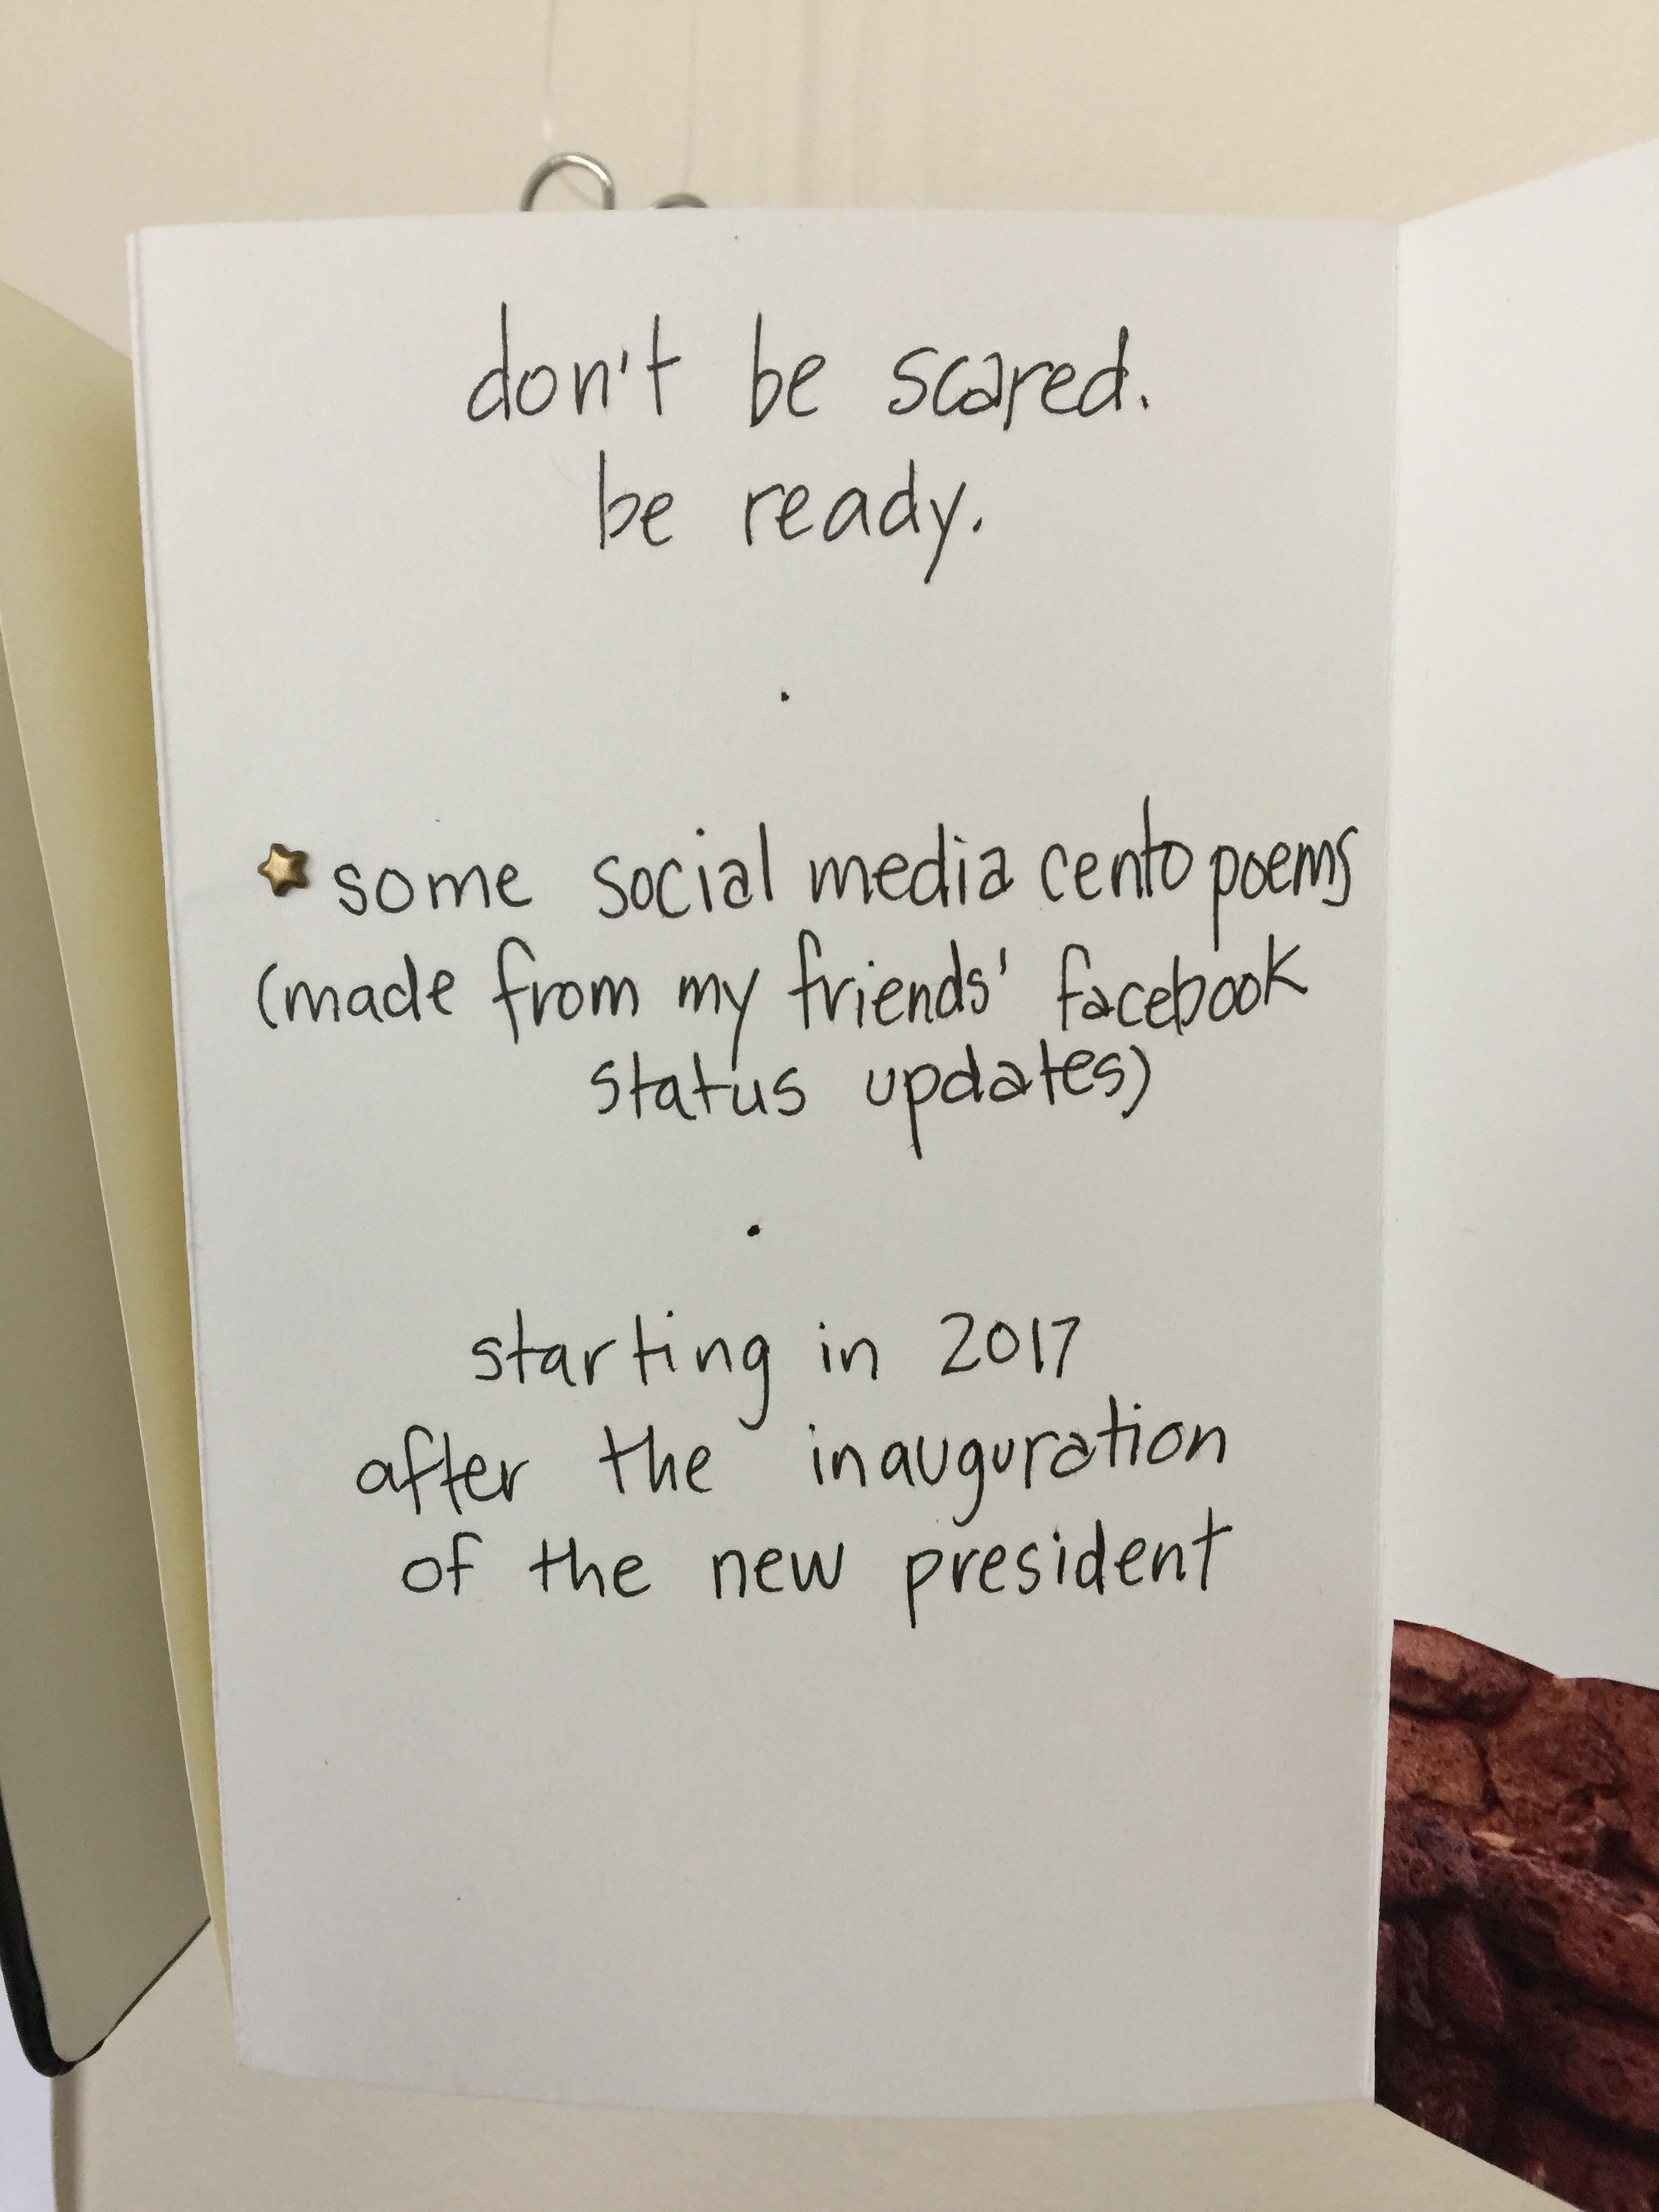 don't be scared.
be ready.
.
some social media cento poems
(made from my friends' facebook
status updates)
.
starting in 2017
after the inauguration
of the new president